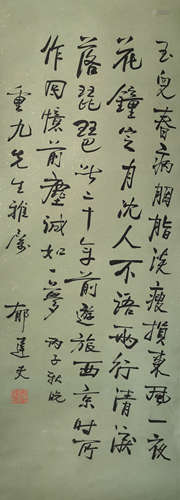 玉兒春病胭脂淡瘦損東風一夜
花鐘定有沈人不語兩行清淚
落琵琶此二十年前遊旅西京時所
作回憶前塵誠如一夢 丙子秋晚
重九先生雅屬
郁達夫